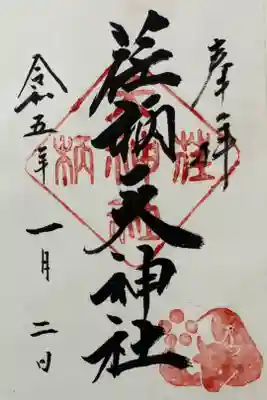 奉拝
荏柄天神社
令和五年
一月二日